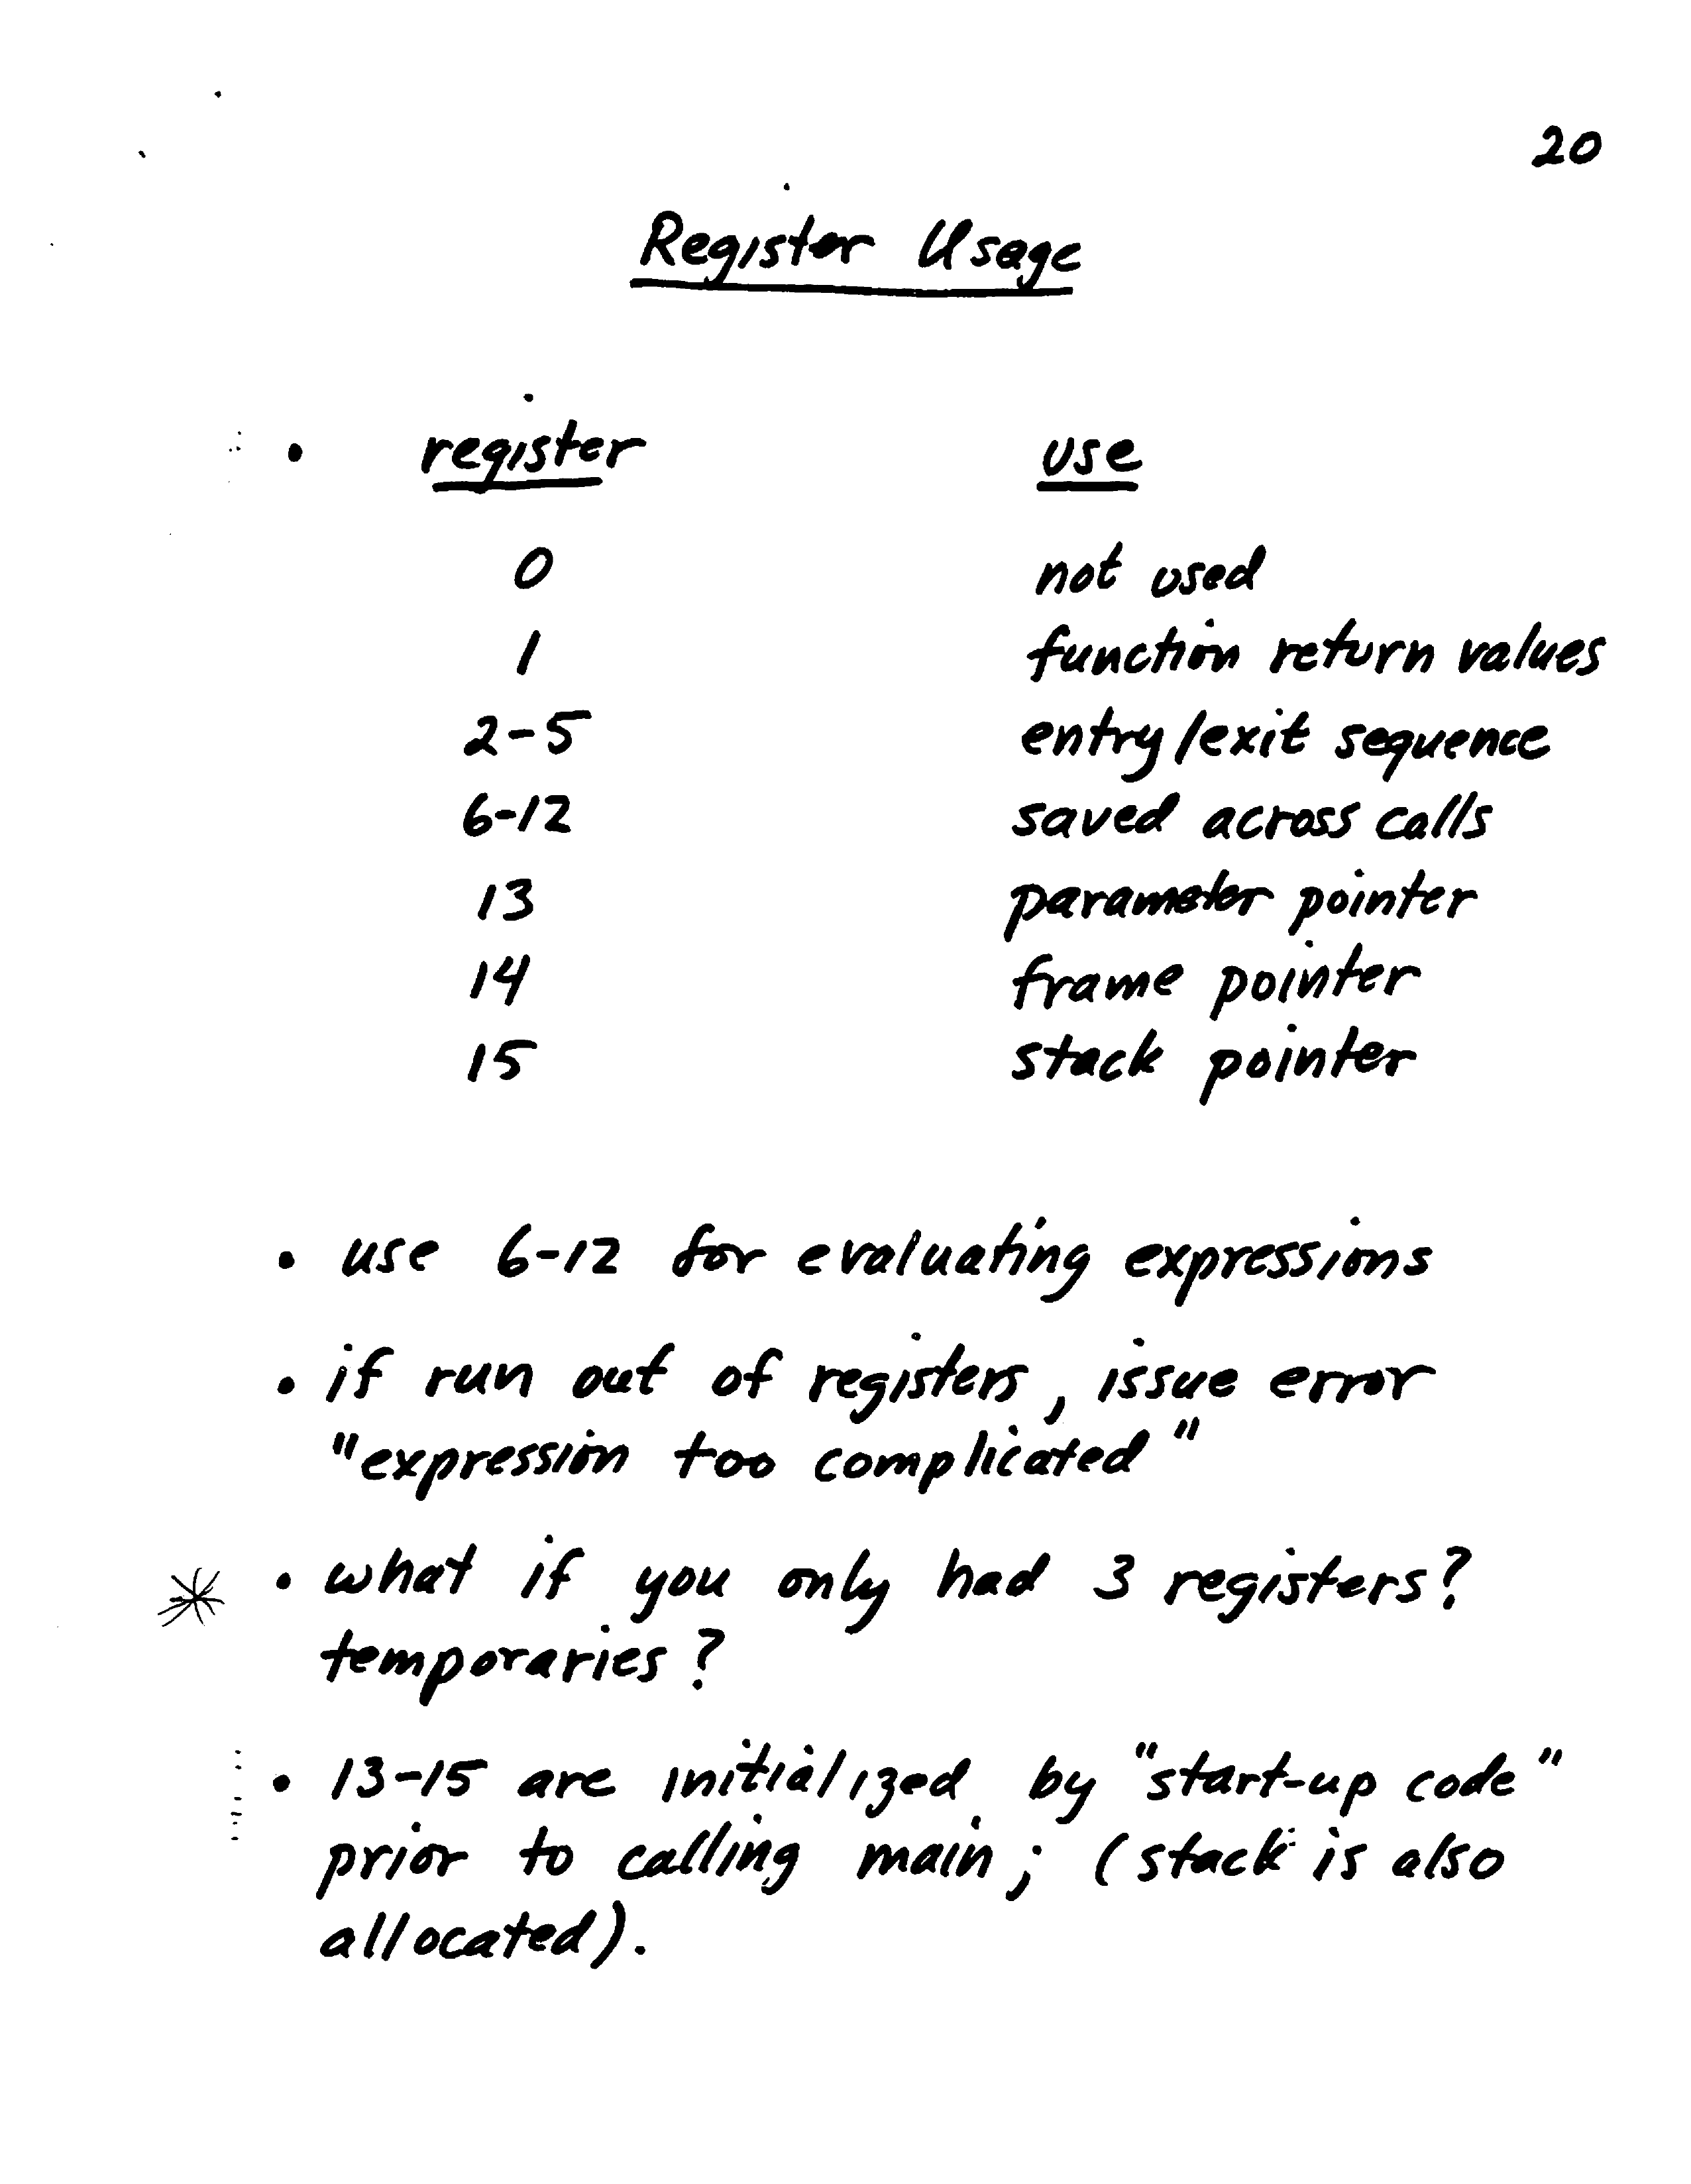 20
Register Usage
• register use
0 not used
1 function return values
2-5 entry/exit sequence
6-12 saved across calls
13 parameter pointer
14 frame pointer
15 stack pointer
• use 6-12 for evaluating expressions
• if run out of registers, issue error
"expression too complicated"
* • what if you only had 3 registers?
temporaries?
• 13-15 are initialized by "start-up code"
prior to calling main; (stack is also
allocated).